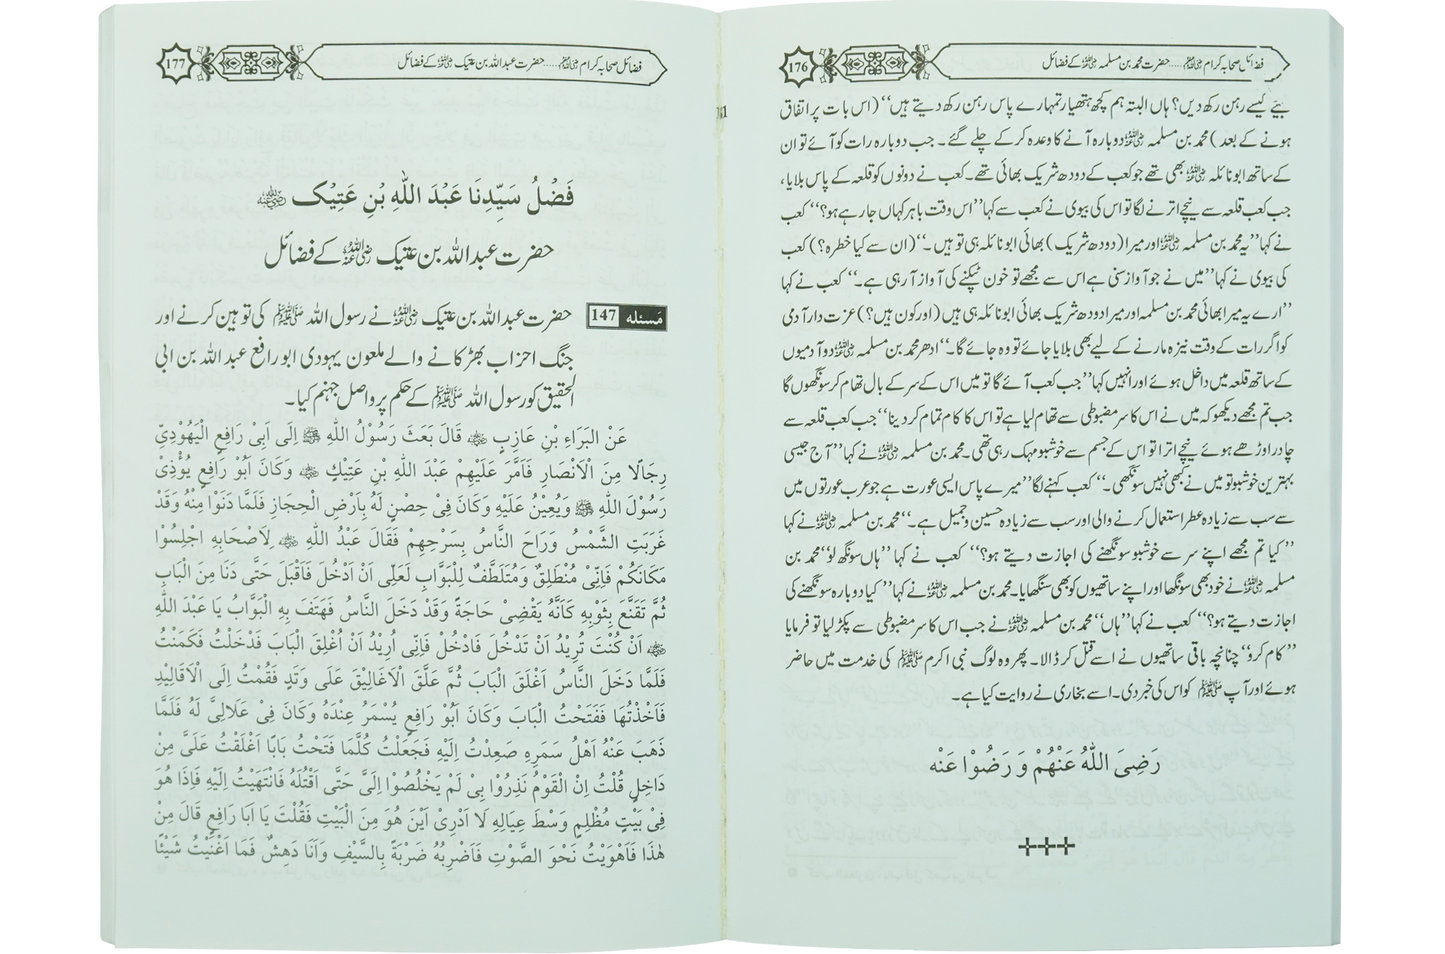 فضائل صحابہ کرام ﷢..... حضرت محمد بن مسلمہ ﷜ کے فضائل
176
بیٹے کیسے رہن رکھ دیں؟ ہاں البتہ ہم کچھ ہتھیار تمہارے پاس رہن رکھ دیتے ہیں‘‘ (اس بات پر اتفاق
ہونے کے بعد) محمد بن مسلمہ ﷜ دوبارہ آنے کا وعدہ کر کے چلے گئے۔ جب دوبارہ رات کو آئے تو ان
کے ساتھ ابو نائلہ ﷜ بھی تھے جو کعب کے دودھ شریک بھائی تھے۔ کعب نے دونوں کو قلعہ کے پاس بلایا،
جب کعب قلعہ سے نیچے اترنے لگا تو اس کی بیوی نے کعب سے کہا ’’اس وقت باہر کہاں جا رہے ہو؟‘‘ کعب
نے کہا ’’یہ محمد بن مسلمہ ﷜ اور میرا (دودھ شریک) بھائی ابو نائلہ ہی تو ہیں۔‘‘ (ان سے کیا خطرہ؟) کعب
کی بیوی نے کہا ’’میں نے جو آواز سنی ہے اس سے مجھے تو خون ٹپکنے کی آواز آ رہی ہے۔‘‘ کعب نے کہا
’’ارے یہ میرا بھائی محمد بن مسلمہ اور میرا دودھ شریک بھائی ابو نائلہ ہی ہیں (اور کون ہیں؟) عزت دار آدمی
کو اگر رات کے وقت نیزہ مارنے کے لیے بھی بلایا جائے تو وہ جائے گا۔‘‘ ادھر محمد بن مسلمہ ﷜ دو آدمیوں
کے ساتھ قلعہ میں داخل ہوئے اور انہیں کہا ’’جب کعب آئے گا تو میں اس کے سر کے بال تھام کر سونگھوں گا
جب تم مجھے دیکھو کہ میں نے اس کا سر مضبوطی سے تھام لیا ہے تو اس کا کام تمام کر دینا‘‘ جب کعب قلعہ سے
چادر اوڑھے ہوئے نیچے اترا تو اس کے جسم سے خوشبو مہک رہی تھی۔ محمد بن مسلمہ ﷜ نے کہا ’’آج جیسی
بہترین خوشبو تو میں نے کبھی نہیں سونگھی۔‘‘ کعب کہنے لگا ’’میرے پاس ایسی عورت ہے جو عرب عورتوں میں
سے سب سے زیادہ عطر استعمال کرنے والی اور سب سے زیادہ حسین و جمیل ہے۔‘‘ محمد بن مسلمہ ﷜ نے کہا
’’کیا تم مجھے اپنے سر سے خوشبو سونگھنے کی اجازت دیتے ہو؟‘‘ کعب نے کہا ’’ہاں سونگھ لو‘‘ محمد بن
مسلمہ ﷜ نے خود بھی سونگھا اور اپنے ساتھیوں کو بھی سنگھایا۔ محمد بن مسلمہ ﷜ نے کہا ’’کیا دوبارہ سونگھنے کی
اجازت دیتے ہو؟‘‘ کعب نے کہا ’’ہاں‘‘ محمد بن مسلمہ ﷜ نے جب اس کا سر مضبوطی سے پکڑ لیا تو فرمایا
’’کام کرو‘‘ چنانچہ باقی ساتھیوں نے اسے قتل کر ڈالا۔ پھر وہ لوگ نبی اکرم ﷺ کی خدمت میں حاضر
ہوئے اور آپ ﷺ کو اس کی خبر دی۔ اسے بخاری نے روایت کیا ہے۔
رَضِیَ اللّٰہُ عَنْهُمْ وَ رَضُوْا عَنْهُ
فضائل صحابہ کرام ﷢..... حضرت عبداللہ بن عتیک ﷜ کے فضائل
177
فَضْلُ سَيِّدِنَا عَبْدَ اللّٰهِ بْنِ عَتِيْكٍ ﷜
حضرت عبداللہ بن عتیک ﷜ کے فضائل
مَسئلہ 147 حضرت عبداللہ بن عتیک ﷜ نے رسول اللہ ﷺ کی توہین کرنے اور
جنگ احزاب بھڑکانے والے ملعون یہودی ابو رافع عبداللہ بن ابی
الحقیق کو رسول اللہ ﷺ کے حکم پر واصل جہنم کیا۔
عَنْ الْبَرَاءِ بْنِ عَازِبٍ ﷜ قَالَ بَعَثَ رَسُوْلُ اللّٰهِ ﷺ إِلَى أَبِىْ رَافِعٍ الْيَهُوْدِيِّ
رِجَالًا مِنَ الْاَنْصَارِ فَاَمَّرَ عَلَيْهِمْ عَبْدَ اللّٰهِ بْنِ عَتِيْكٍ ﷜ وَكَانَ أَبُوْ رَافِعٍ يُؤْذِىْ
رَسُوْلَ اللّٰهِ ﷺ وَيُعِيْنُ عَلَيْهِ وَكَانَ فِىْ حِصْنٍ لَهُ بِاَرْضِ الْحِجَازِ فَلَمَّا دَنَوْا مِنْهُ وَقَدْ
غَرَبَتِ الشَّمْسُ وَرَاحَ النَّاسُ بِسَرْحِهِمْ فَقَالَ عَبْدُ اللّٰهِ ﷜ لِاَصْحَابِهِ اجْلِسُوْا
مَكَانَكُمْ فَاِنِّىْ مُنْطَلِقٌ وَمُتَلَطِّفٌ لِلْبَوَّابِ لَعَلِّى اَنْ اَدْخُلَ فَاَقْبَلَ حَتّٰى دَنَا مِنَ الْبَابِ
ثُمَّ تَقَنَّعَ بِثَوْبِهِ كَاَنَّهُ يَقْضِىْ حَاجَةً وَقَدْ دَخَلَ النَّاسُ فَهَتَفَ بِهِ الْبَوَّابُ يَا عَبْدَ اللّٰهِ
﷜ اَنْ كُنْتَ تُرِيْدُ اَنْ تَدْخُلَ فَادْخُلْ فَاِنِّى اُرِيْدُ اَنْ اُغْلِقَ الْبَابَ فَدَخَلْتُ فَكَمَنْتُ
فَلَمَّا دَخَلَ النَّاسُ اَغْلَقَ الْبَابَ ثُمَّ عَلَّقَ الْاَغَالِيْقَ عَلٰى وَتَدٍ فَقُمْتُ اِلَى الْاَقَالِيْدِ
فَاَخَذْتُهَا فَفَتَحْتُ الْبَابَ وَكَانَ اَبُوْ رَافِعٍ يُسْمَرُ عِنْدَهُ وَكَانَ فِىْ عَلَالِىَّ لَهُ فَلَمَّا
ذَهَبَ عَنْهُ اَهْلُ سَمَرِهِ صَعِدْتُ اِلَيْهِ فَجَعَلْتُ كُلَّمَا فَتَحْتُ بَابًا اَغْلَقْتُ عَلَىَّ مِنْ
دَاخِلٍ قُلْتُ اِنْ الْقَوْمُ نَذِرُوْا بِىْ لَمْ يَخْلُصُوْا اِلَىَّ حَتّٰى اَقْتُلَهُ فَانْتَهَيْتُ اِلَيْهِ فَاِذَا هُوَ
فِىْ بَيْتٍ مُظْلِمٍ وَسْطَ عِيَالِهِ لَا اَدْرِىْ اَيْنَ هُوَ مِنَ الْبَيْتِ فَقُلْتُ يَا اَبَا رَافِعٍ قَالَ مِنْ
هٰذَا فَاَهْوَيْتُ نَحْوَ الصَّوْتِ فَاَضْرِبُهُ ضَرْبَةً بِالسَّيْفِ وَاَنَا دَهِشٌ فَمَا اَغْنَيْتُ شَيْئًا